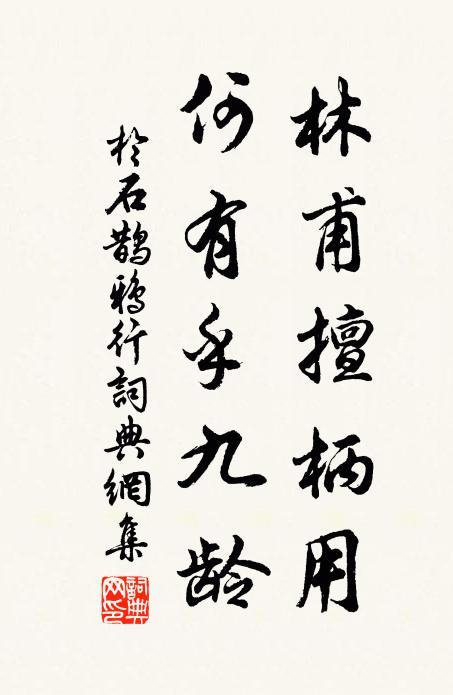 林甫擅柄用
何有乎九龄
於石鹊鸦行詞典網集
詞典網印